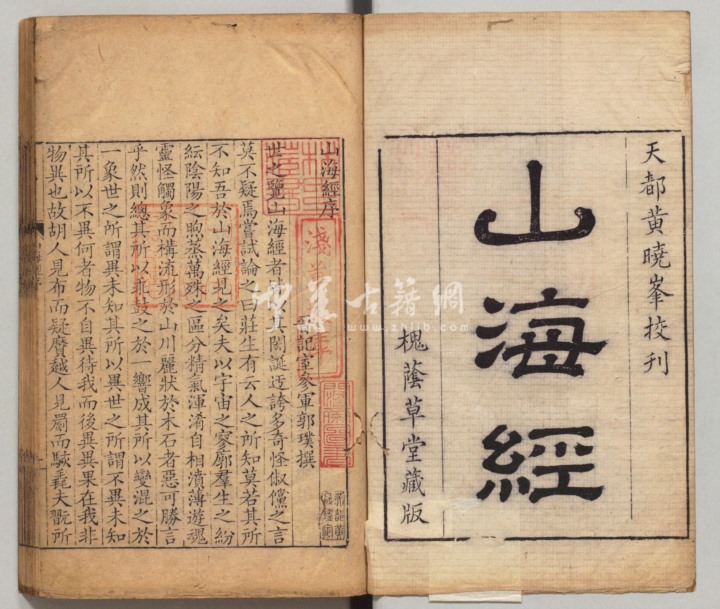 天都黃曉峯挍刊
山海經
槐蔭草堂藏版
山海經序
記室參軍郭璞撰
世之覽山海經者皆以其閎誕迂誇多奇怪俶儻之言
莫不疑焉嘗試論之曰莊生有云人之所知莫若其所
不知吾於山海經見之矣夫以宇宙之寥廓羣生之紛
紜陰陽之煦蒸萬殊之區分精氣渾淆自相濆薄遊魂
靈怪觸象而構流形於山川麗狀於木石者惡可勝言
乎然則總其所以乖鼓之於一響成其所以變混之於
一象世之所謂異未知其所以異世之所謂不異未知
其所以不異何者物不自異待我而後異異果在我非
物異也故胡人見布而疑黂越人見罽而駭毳夫翫所
山海經序
中華古籍網
www.zhjjb.com